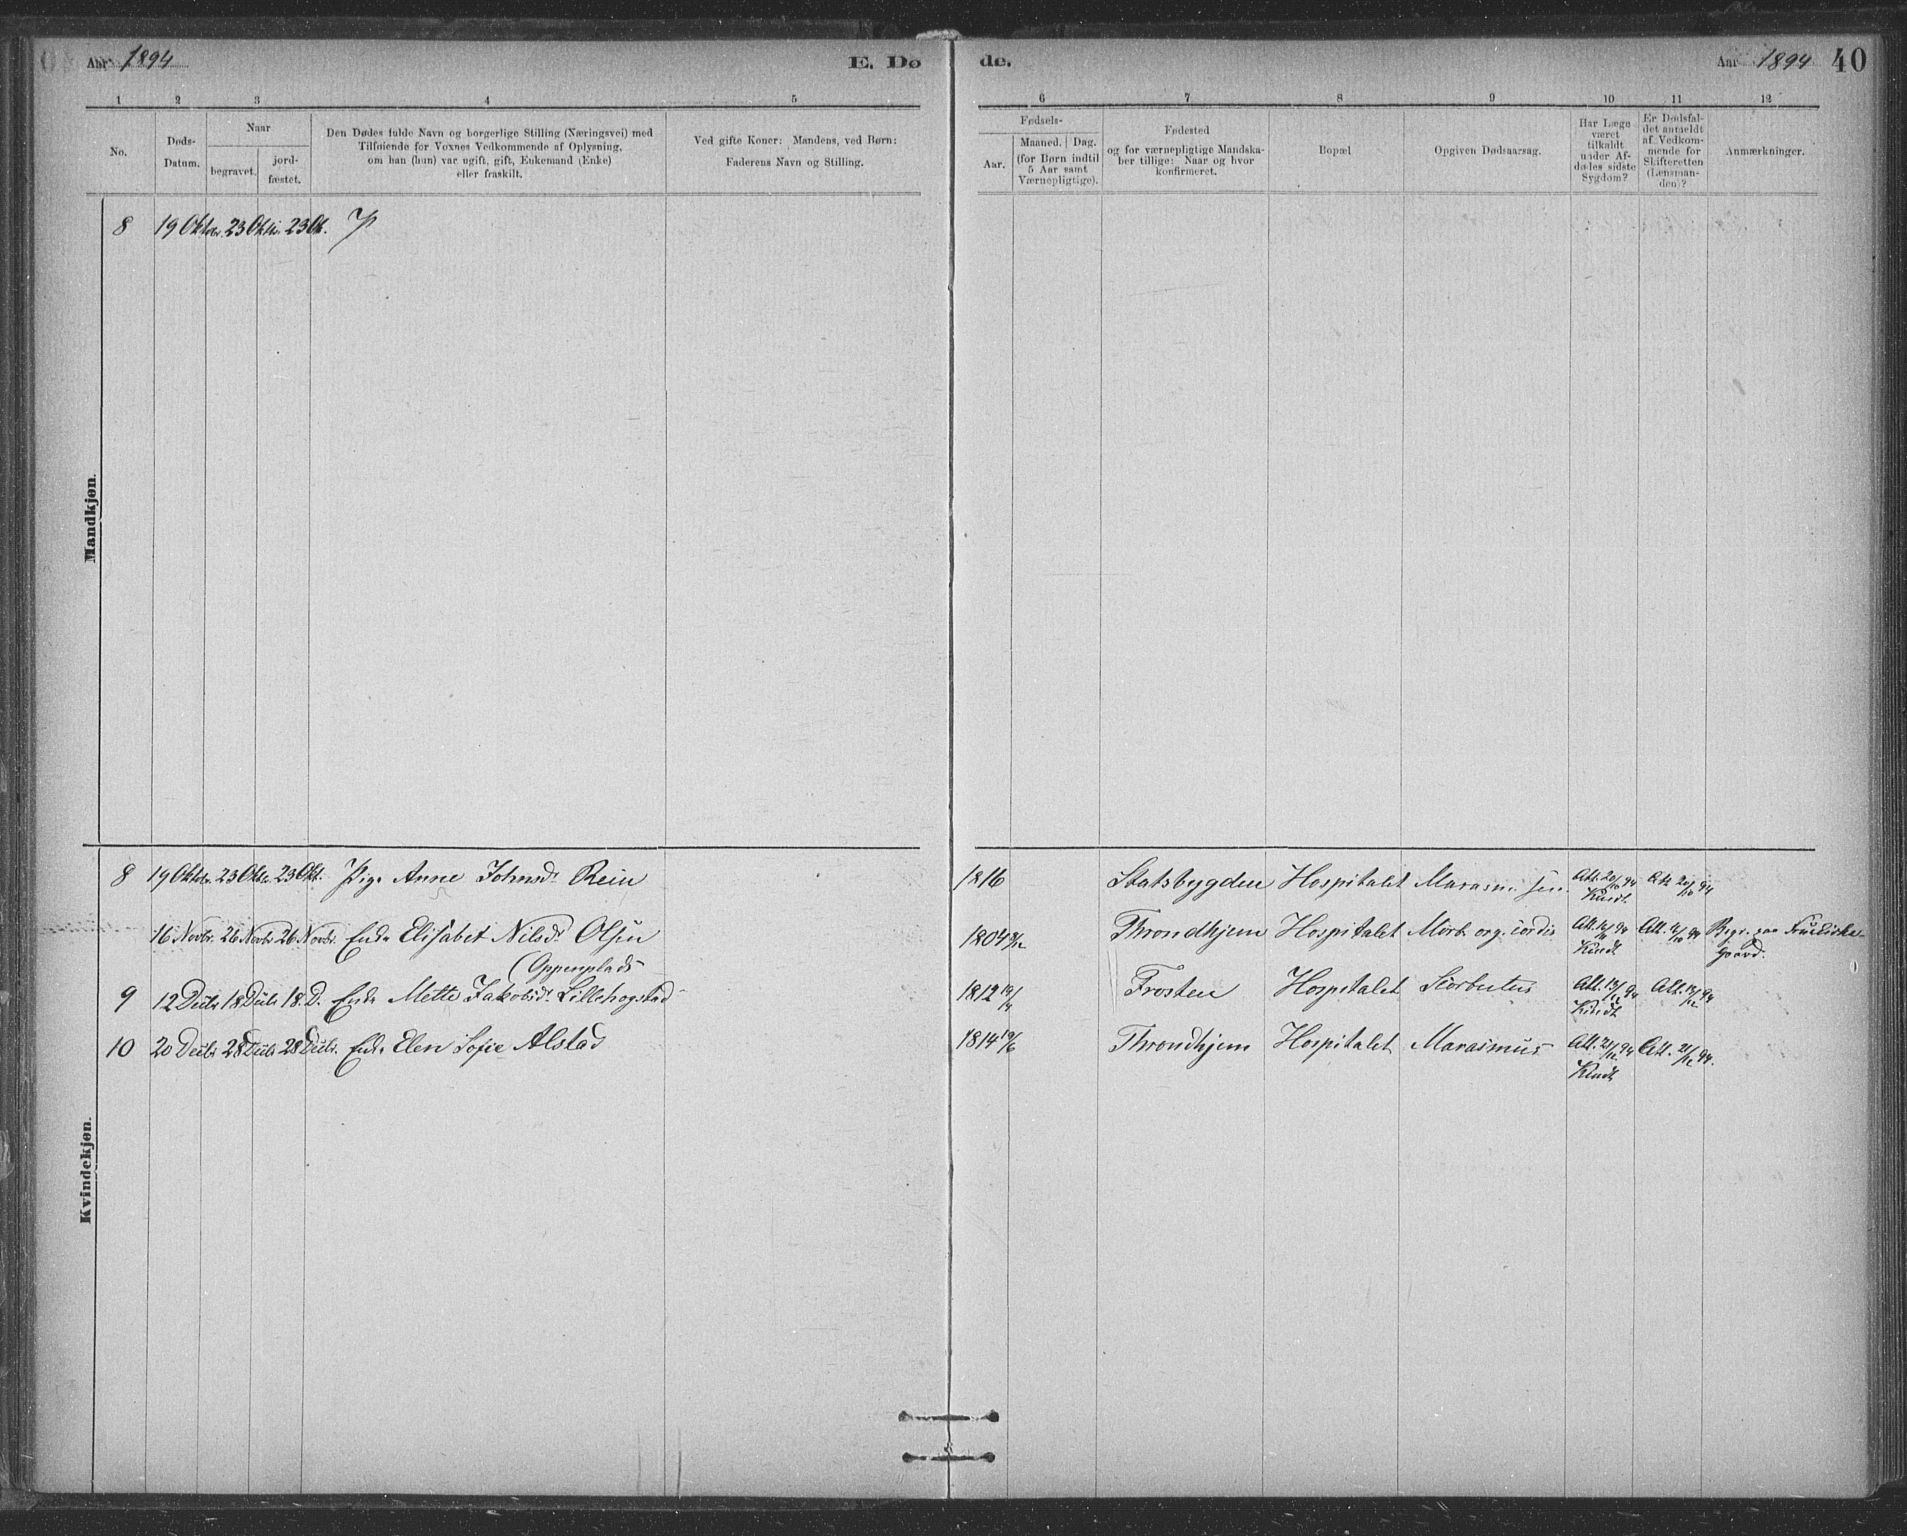 Aar 1894
E. Dø
de.
Aar 1894
40
1 2 3 4 5
6 7 8 9 10 11 12
No.
Døds-
Datum.
Naar
begravet.
jord-
fæstet.
Den Dødes fulde Navn og borgerlige Stilling (Næringsvei) med
Tilføiende for Voxnes Vedkommende af Oplysning,
om han (hun) var ugift, gift, Enkemand (Enke)
eller fraskilt.
Ved gifte Koner: Mandens, ved Børn:
Faderens Navn og Stilling.
Fødsels-
Aar.
Maaned. Dag.
(for Børn indtil
5 Aar samt
Værnepligtige).
Fødested
og for værnepligtige Mandska-
ber tillige: Naar og hvor
konfirmeret.
Bopæl
Opgiven Dødsaarsag.
Har Læge
været
tilkaldt
under Af-
dødes sidste
Sygdom?
Er Dødsfal-
det anmeldt
af Vedkom-
mende for
Skifteretten
(Lensman-
den)?
Anmærkninger.
Mandkjøn.
8 19 Oktbr. 23 Oktbr. 23 Ok. P
Kvindekjøn.
8 19 Oktbr. 23 Oktbr. 23 Okt. Pige Anne Johnsd. Rein 1816 Statsbygden Hospitalet Marasm. sen. Att. 20/10 94 Att. 20/10 94
Kindt
16 Novbr. 26 Novbr. 26 Novbr. Enke Elisabet Nilsd. Olsen 1804 Throndhjem Hospitalet Morb. org. cordis Att. 94 Att. 94 Begr. paa
Kindt Gaard.
9 12 Decbr. 18 Decbr. 18. D. Enke Mette Jakobsd. Lillehogstad 1812 Frosten Hospitalet Scorbutus Att. 13/12 94 Att. 13/12 94
Kindt
10 20 Decbr. 28 Decbr. 28 Decbr. Enke Elen Sofie Alstad 1814 19/6 Throndhjem Hospitalet Marasmus Att. 21/12 94 Att. 21/12 94.
Kindt